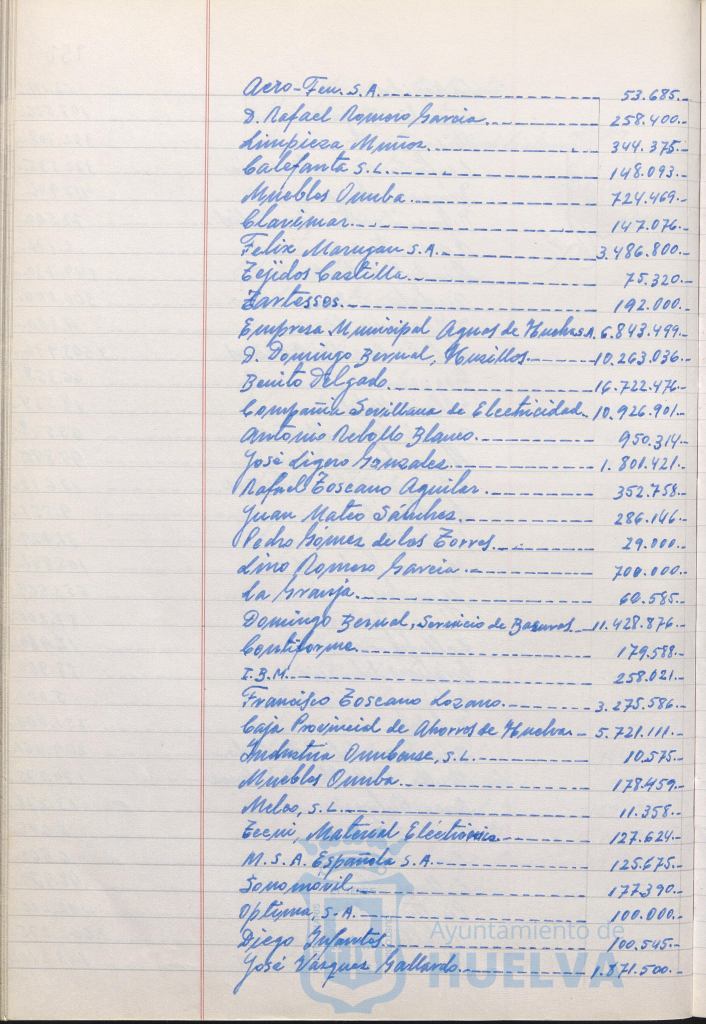 Acro-Fem. S.A. 53.685.-
D. Rafael Romero Garcia 258.400.-
Limpieza Muñoz 344.375.-
Calefanta S.L. 148.093.-
Muebles Onuba 724.469.-
Clavimar 147.076.-
Felix Marugan S.A. 3.486.800.-
Tejidos Castilla 75.320.-
Tartessos 192.000.-
Empresa Municipal Aguas de Huelva S.A. 6.843.499.-
D. Domingo Bernal, Husillos 10.263.036.-
Benito Delgado 16.722.476.-
Compañia Sevillana de Electricidad 10.926.901.-
Antonio Rebollo Blanco 950.314.-
José Ligero Gonzalez 1.801.421.-
Rafael Toscano Aguilar 352.758.-
Juan Mateo Sánchez 286.146.-
Pedro Gómez de las Torres 29.000.-
Lino Romero Garcia 700.000.-
La Granja 60.585.-
Domingo Bernal, Servicio de Basuras 11.428.876.-
Contiforme 179.588.-
I.B.M. 258.021.-
Francisco Toscano Lozano 3.275.586.-
Caja Provincial de Ahorros de Huelva 5.721.111.-
Industria Onubense, S.L. 10.575.-
Muebles Onuba 178.459.-
Melao, S.L. 11.358.-
Tecni, Material Eléctrónico 127.624.-
M.S.A. Española S.A. 125.675.-
Sonomóvil 177.390.-
Optyma, S.A. 100.000.-
Diego Infantes 100.545.-
José Vázquez Gallardo 1.871.500.-
Ayuntamiento de
HUELVA